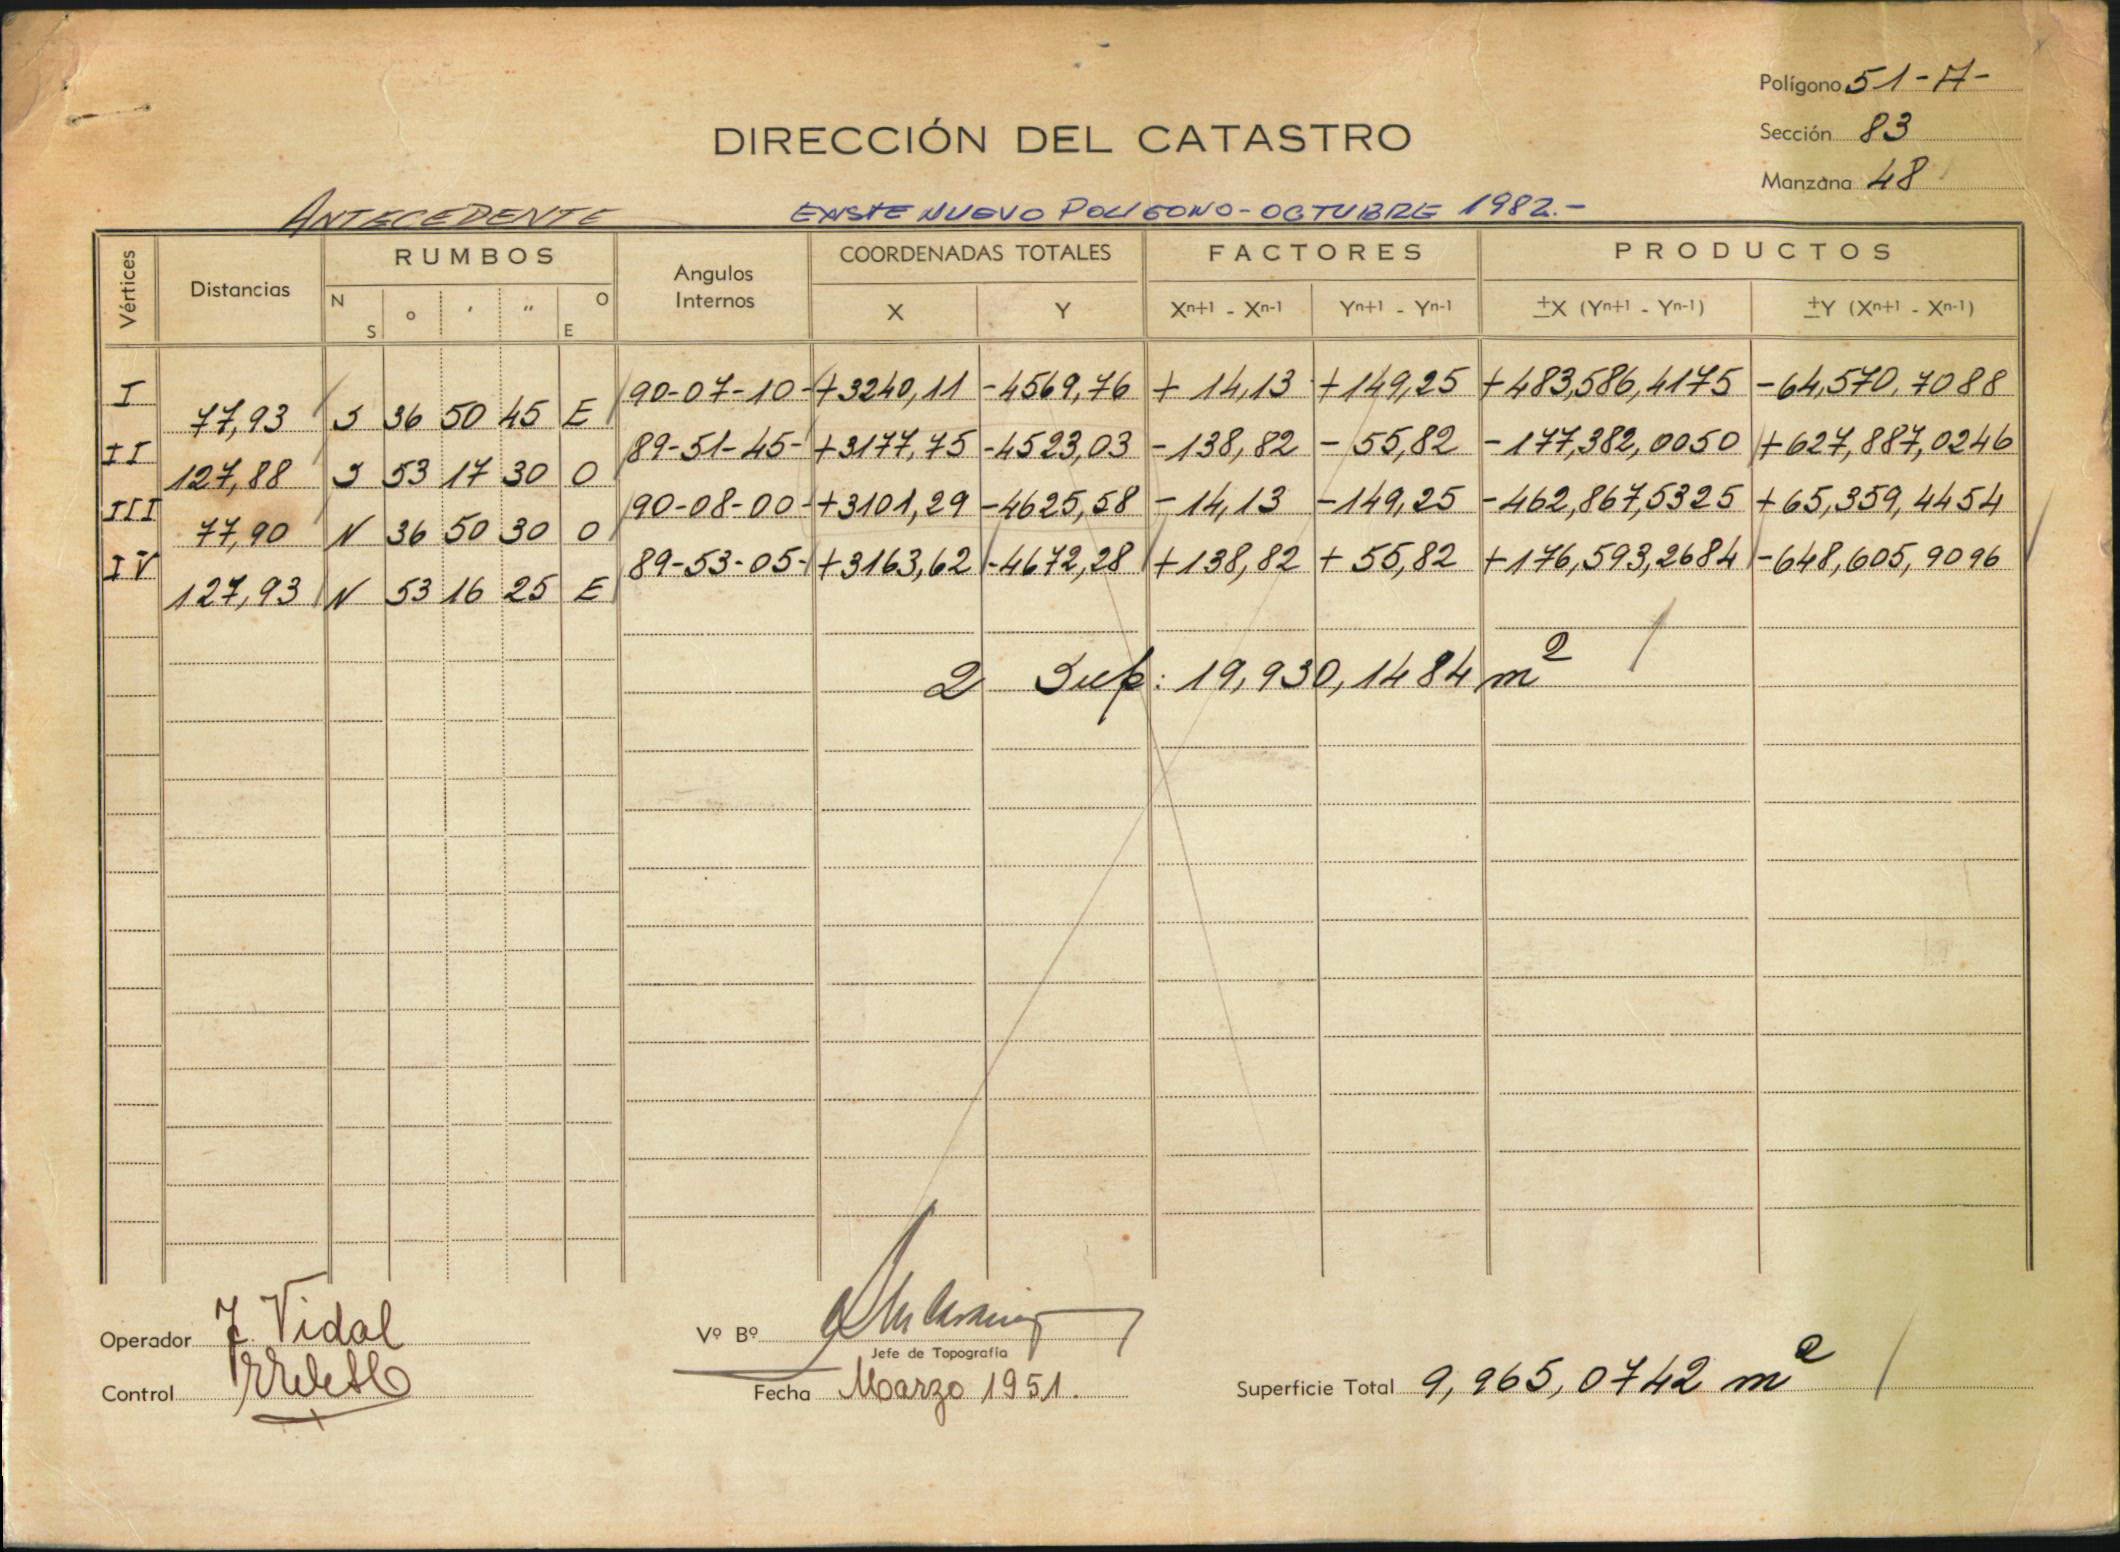 Polígono 51-A-
DIRECCIÓN DEL CATASTRO
Sección 83
Manzana 48
ANTECEDENTE EXISTE NUEVO POLIGONO-OCTUBRE 1982.-
Vértices Distancias RUMBOS Angulos Internos COORDENADAS TOTALES FACTORES PRODUCTOS
N S o ' " O E X Y Xn+1 - Xn-1 Yn+1 - Yn-1 ±X (Yn+1 - Yn-1) ±Y (Xn+1 - Xn-1)
I 90-07-10- +3240,11 -4569,76 + 14,13 +149,25 +483,586,4175 -64,570,7088
77,93 S 36 50 45 E
II 89-51-45- +3177,75 -4523,03 -138,82 - 55,82 -177,382,0050 +627,887,0246
127,88 S 53 17 30 O
III 90-08-00- +3101,29 -4625,58 - 14,13 -149,25 -462,867,5325 +65,359,4454
77,90 N 36 50 30 O
IV 89-53-05- +3163,62 -4672,28 +138,82 + 55,82 +176,593,2684 -648,605,9096
127,93 N 53 16 25 E
2 Sup: 19,930,1484 m²
Operador J. Vidal
Vº Bº
Jefe de Topografía
Control
Fecha Marzo 1951.
Superficie Total 9,965,0742 m²